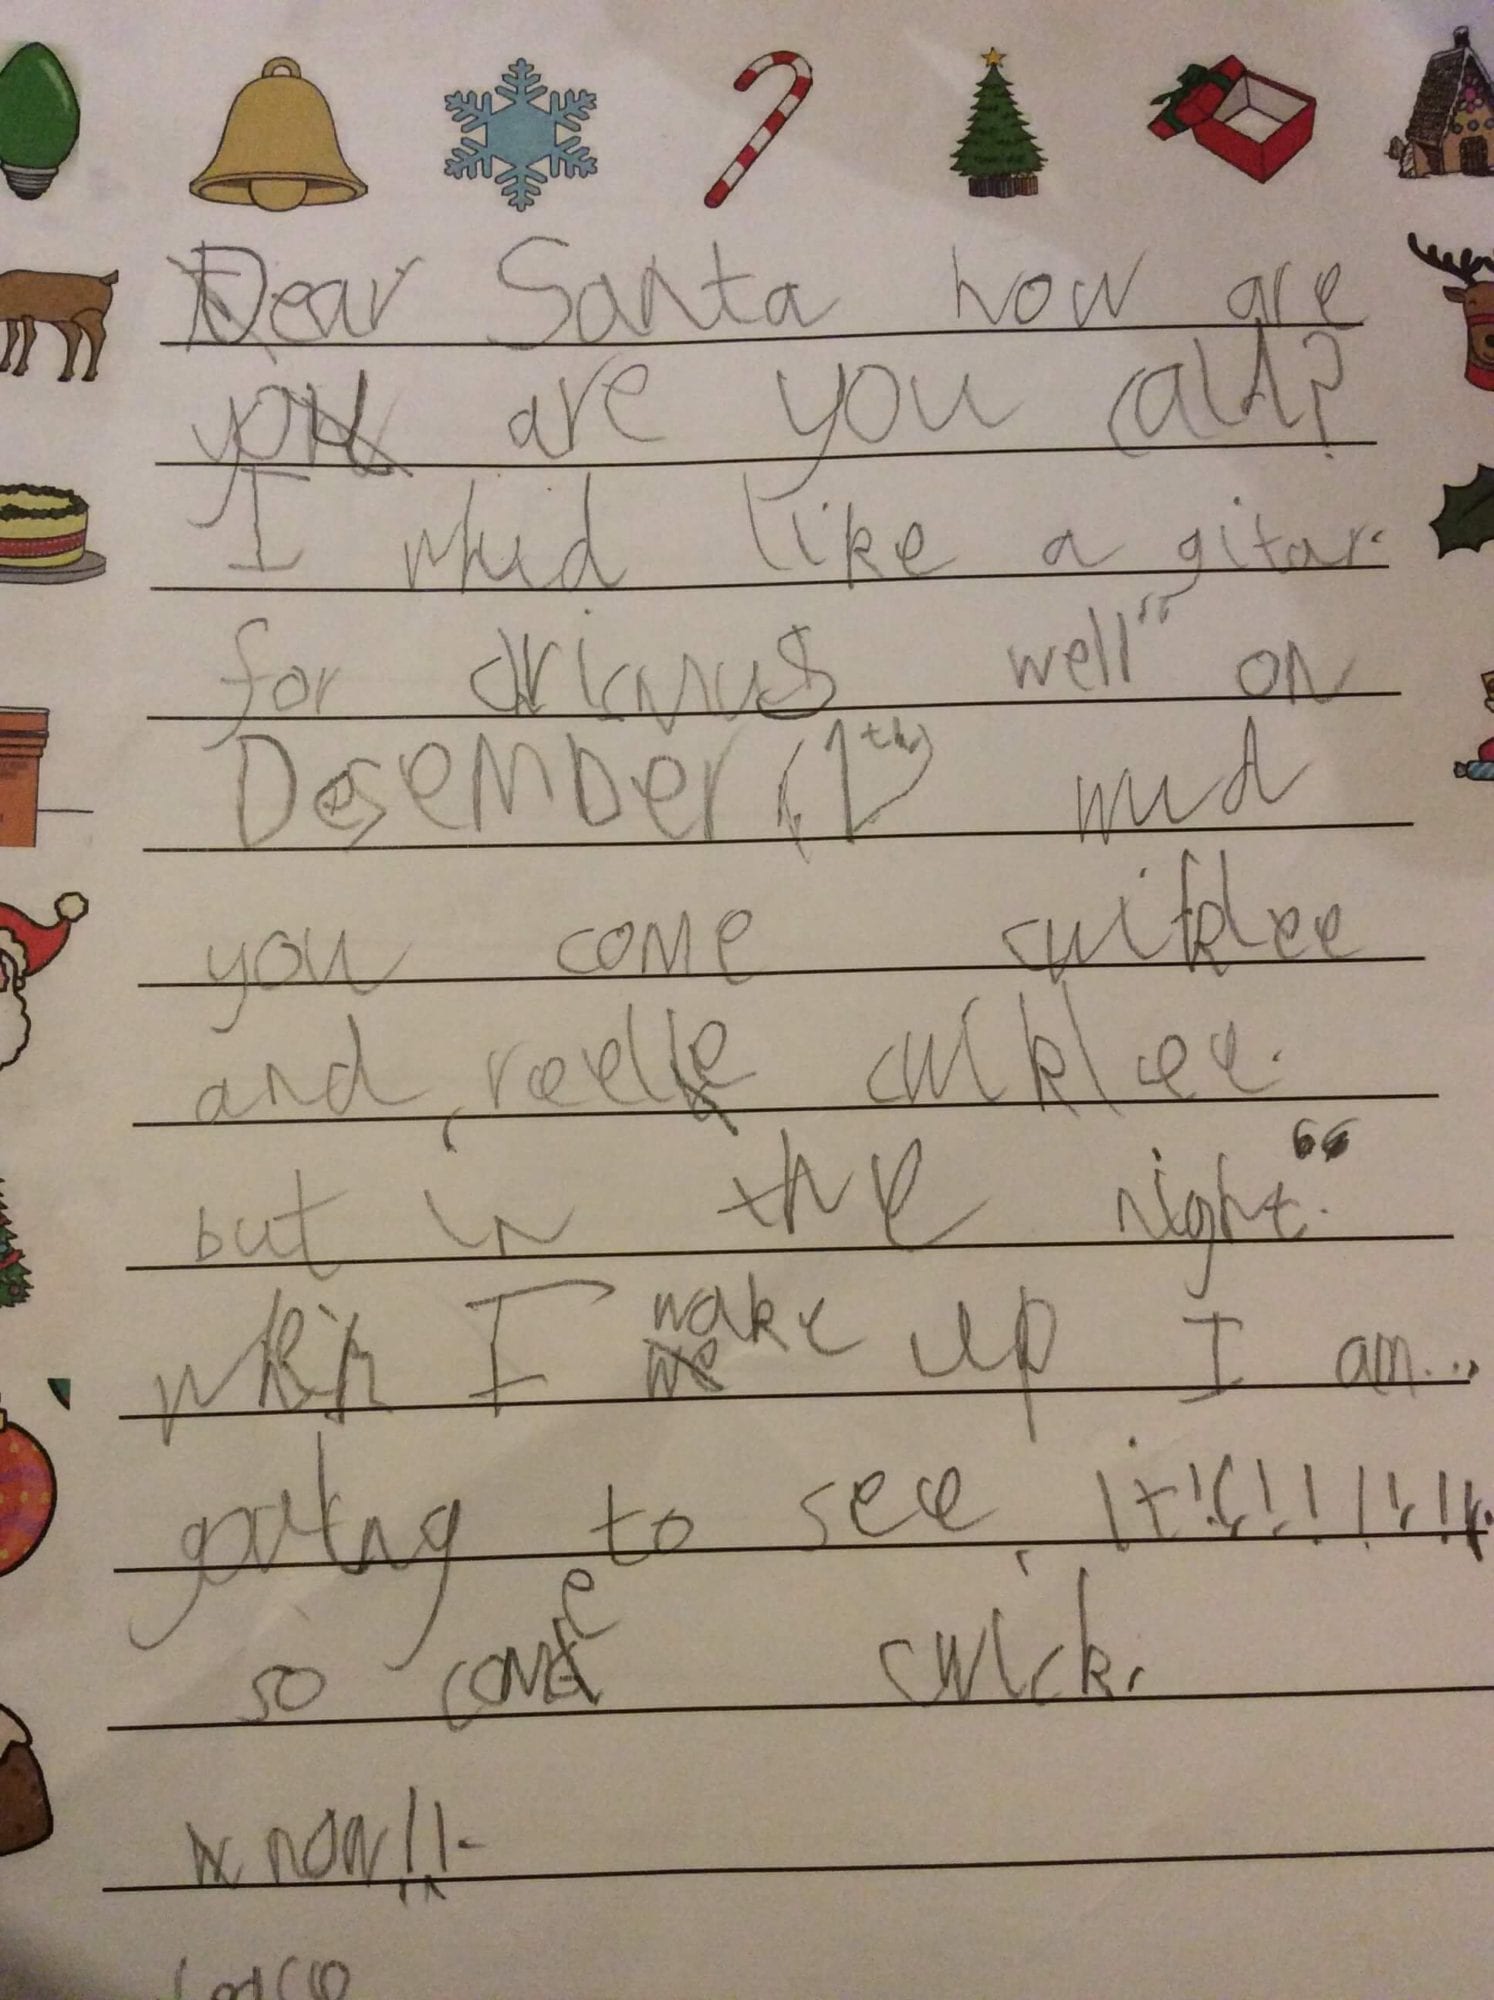 Dear Santa how are
you are you cald?
I whud like a gitar.
for crismus well“ on
Desember (1th) wud
you come cwiklee
and, reelle cwiklee.
but in the night.“
when I wake up I am...
going to see, it!!!!!!!!!
so come cwick,
now!!.